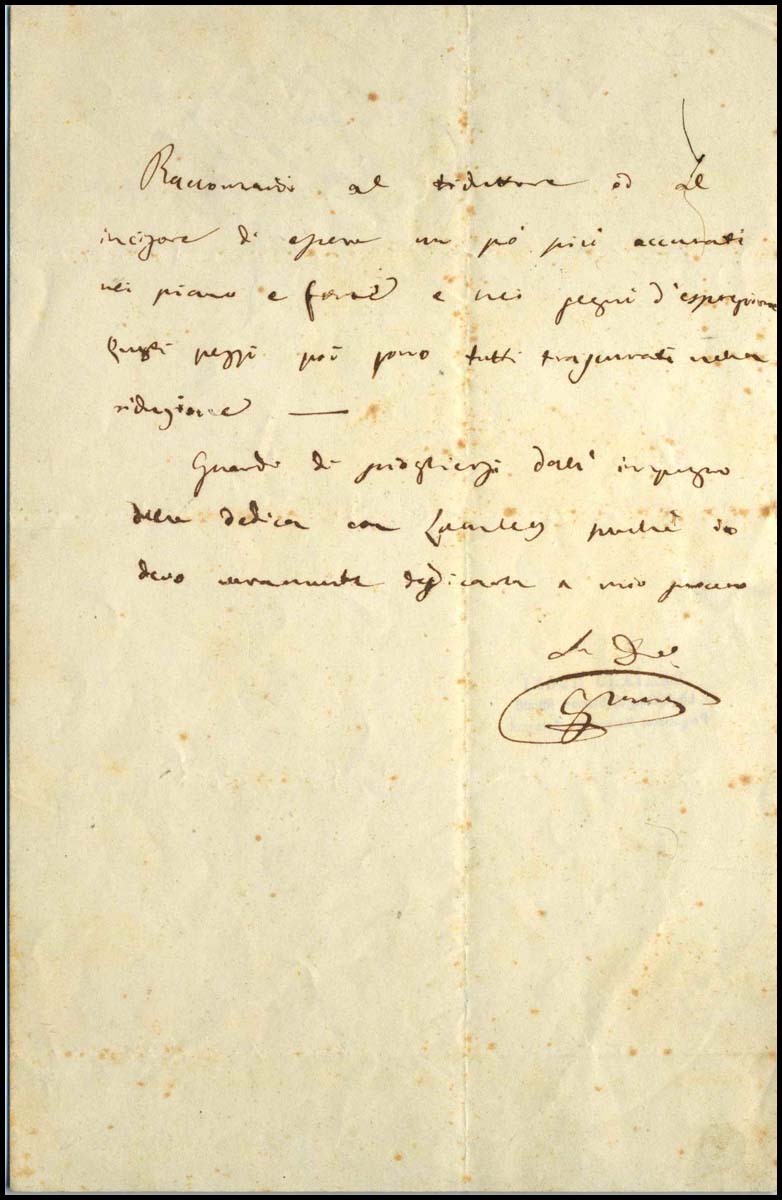 Raccomandi al riduttore od al
incisore di essere un pò più accurati
nei piano e forte e nei segni d'espressione
Questi pezzi poi sono tutti trascurati nella
riduzione —
Guardi di sciogliersi dall' impegno
della dedica con perchè io
devo veramente dedicarla a mio suocero
G Verdi